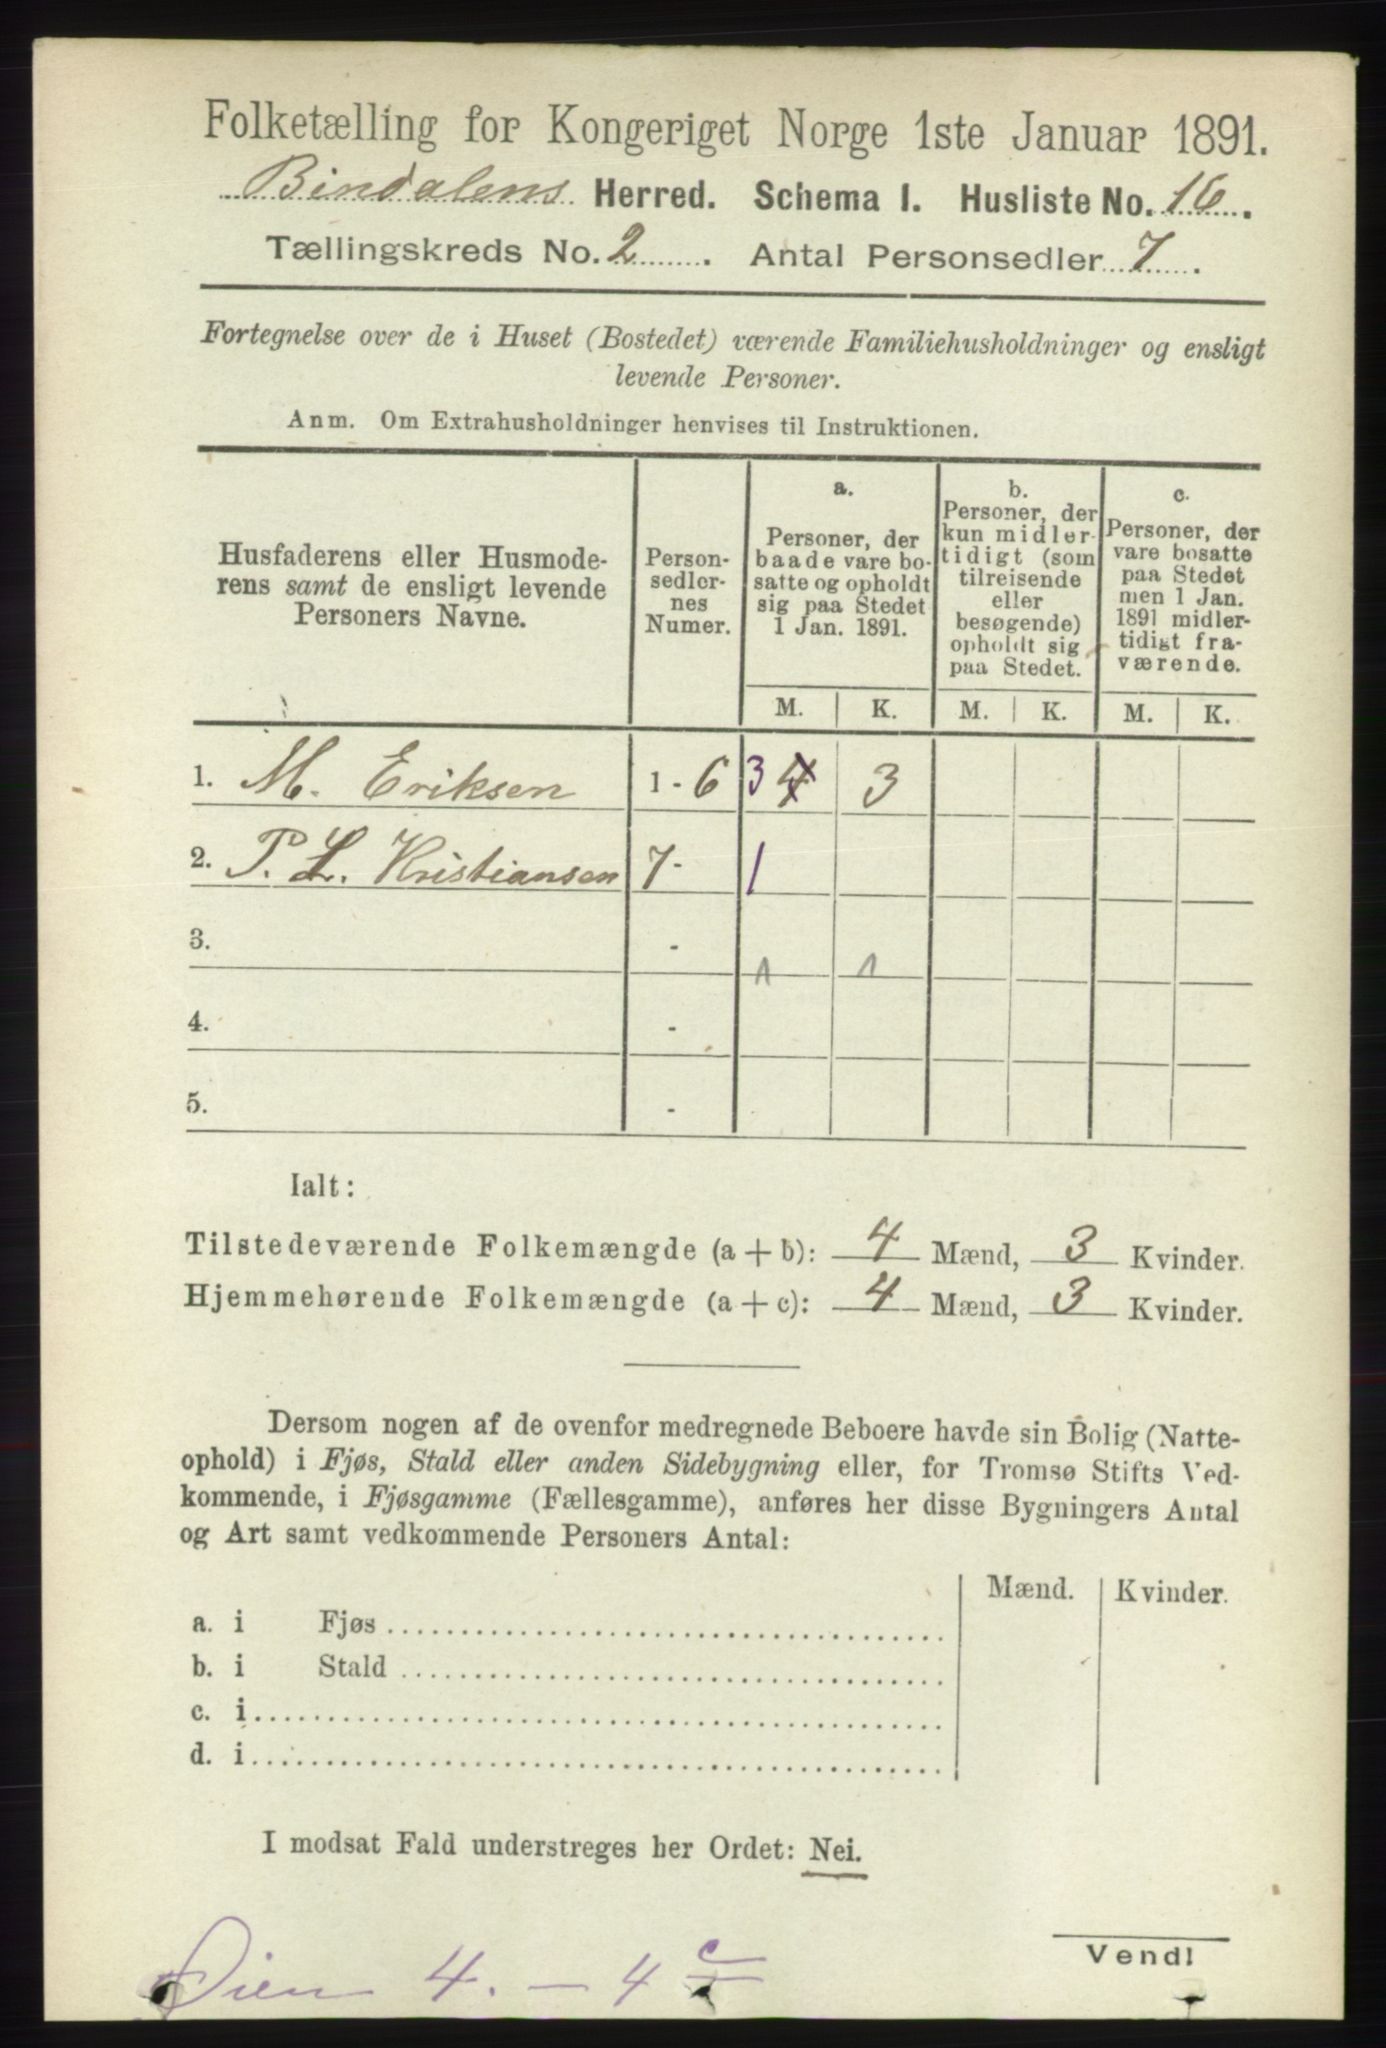 Folketælling for Kongeriget Norge 1ste Januar 1891.
Bindalens Herred. Schema I. Husliste No. 16.
Tællingskreds No. 2. Antal Personsedler 7.
Fortegnelse over de i Huset (Bostedet) værende Familiehusholdninger og ensligt
levende Personer.
Anm. Om Extrahusholdninger henvises til Instruktionen.
Husfaderens eller Husmode-
rens samt de ensligt levende
Personers Navne.
Person-
sedler-
nes
Numer.
a.
Personer, der
baade vare bo-
satte og opholdt
sig paa Stedet
1 Jan. 1891.
b.
Personer, der
kun midler-
tidigt (som
tilreisende
eller
besøgende)
opholdt sig
paa Stedet.
c.
Personer, der
vare bosatte
paa Stedet
men 1 Jan.
1891 midler-
tidigt fra-
værende.
M. K. M. K. M. K.
1. M. Eriksen 1 - 6 3 4 3
2. P. L. Kristiansen 7 - 1
3. -
1 1
4. -
5. -
Ialt:
Tilstedeværende Folkemængde (a + b): 4 Mænd, 3 Kvinder.
Hjemmehørende Folkemængde (a + c): 4 Mænd, 3 Kvinder.
Dersom nogen af de ovenfor medregnede Beboere havde sin Bolig (Natte-
ophold) i Fjøs, Stald eller anden Sidebygning eller, for Tromsø Stifts Ved-
kommende, i Fjøsgamme (Fællesgamme), anføres her disse Bygningers Antal
og Art samt vedkommende Personers Antal:
Mænd. Kvinder.
a. i Fjøs
b. i Stald
c. i
d. i
I modsat Fald understreges her Ordet: Nei.
Vend!
4. - 4